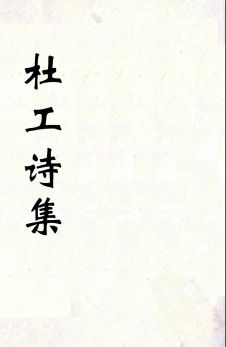 杜工诗集